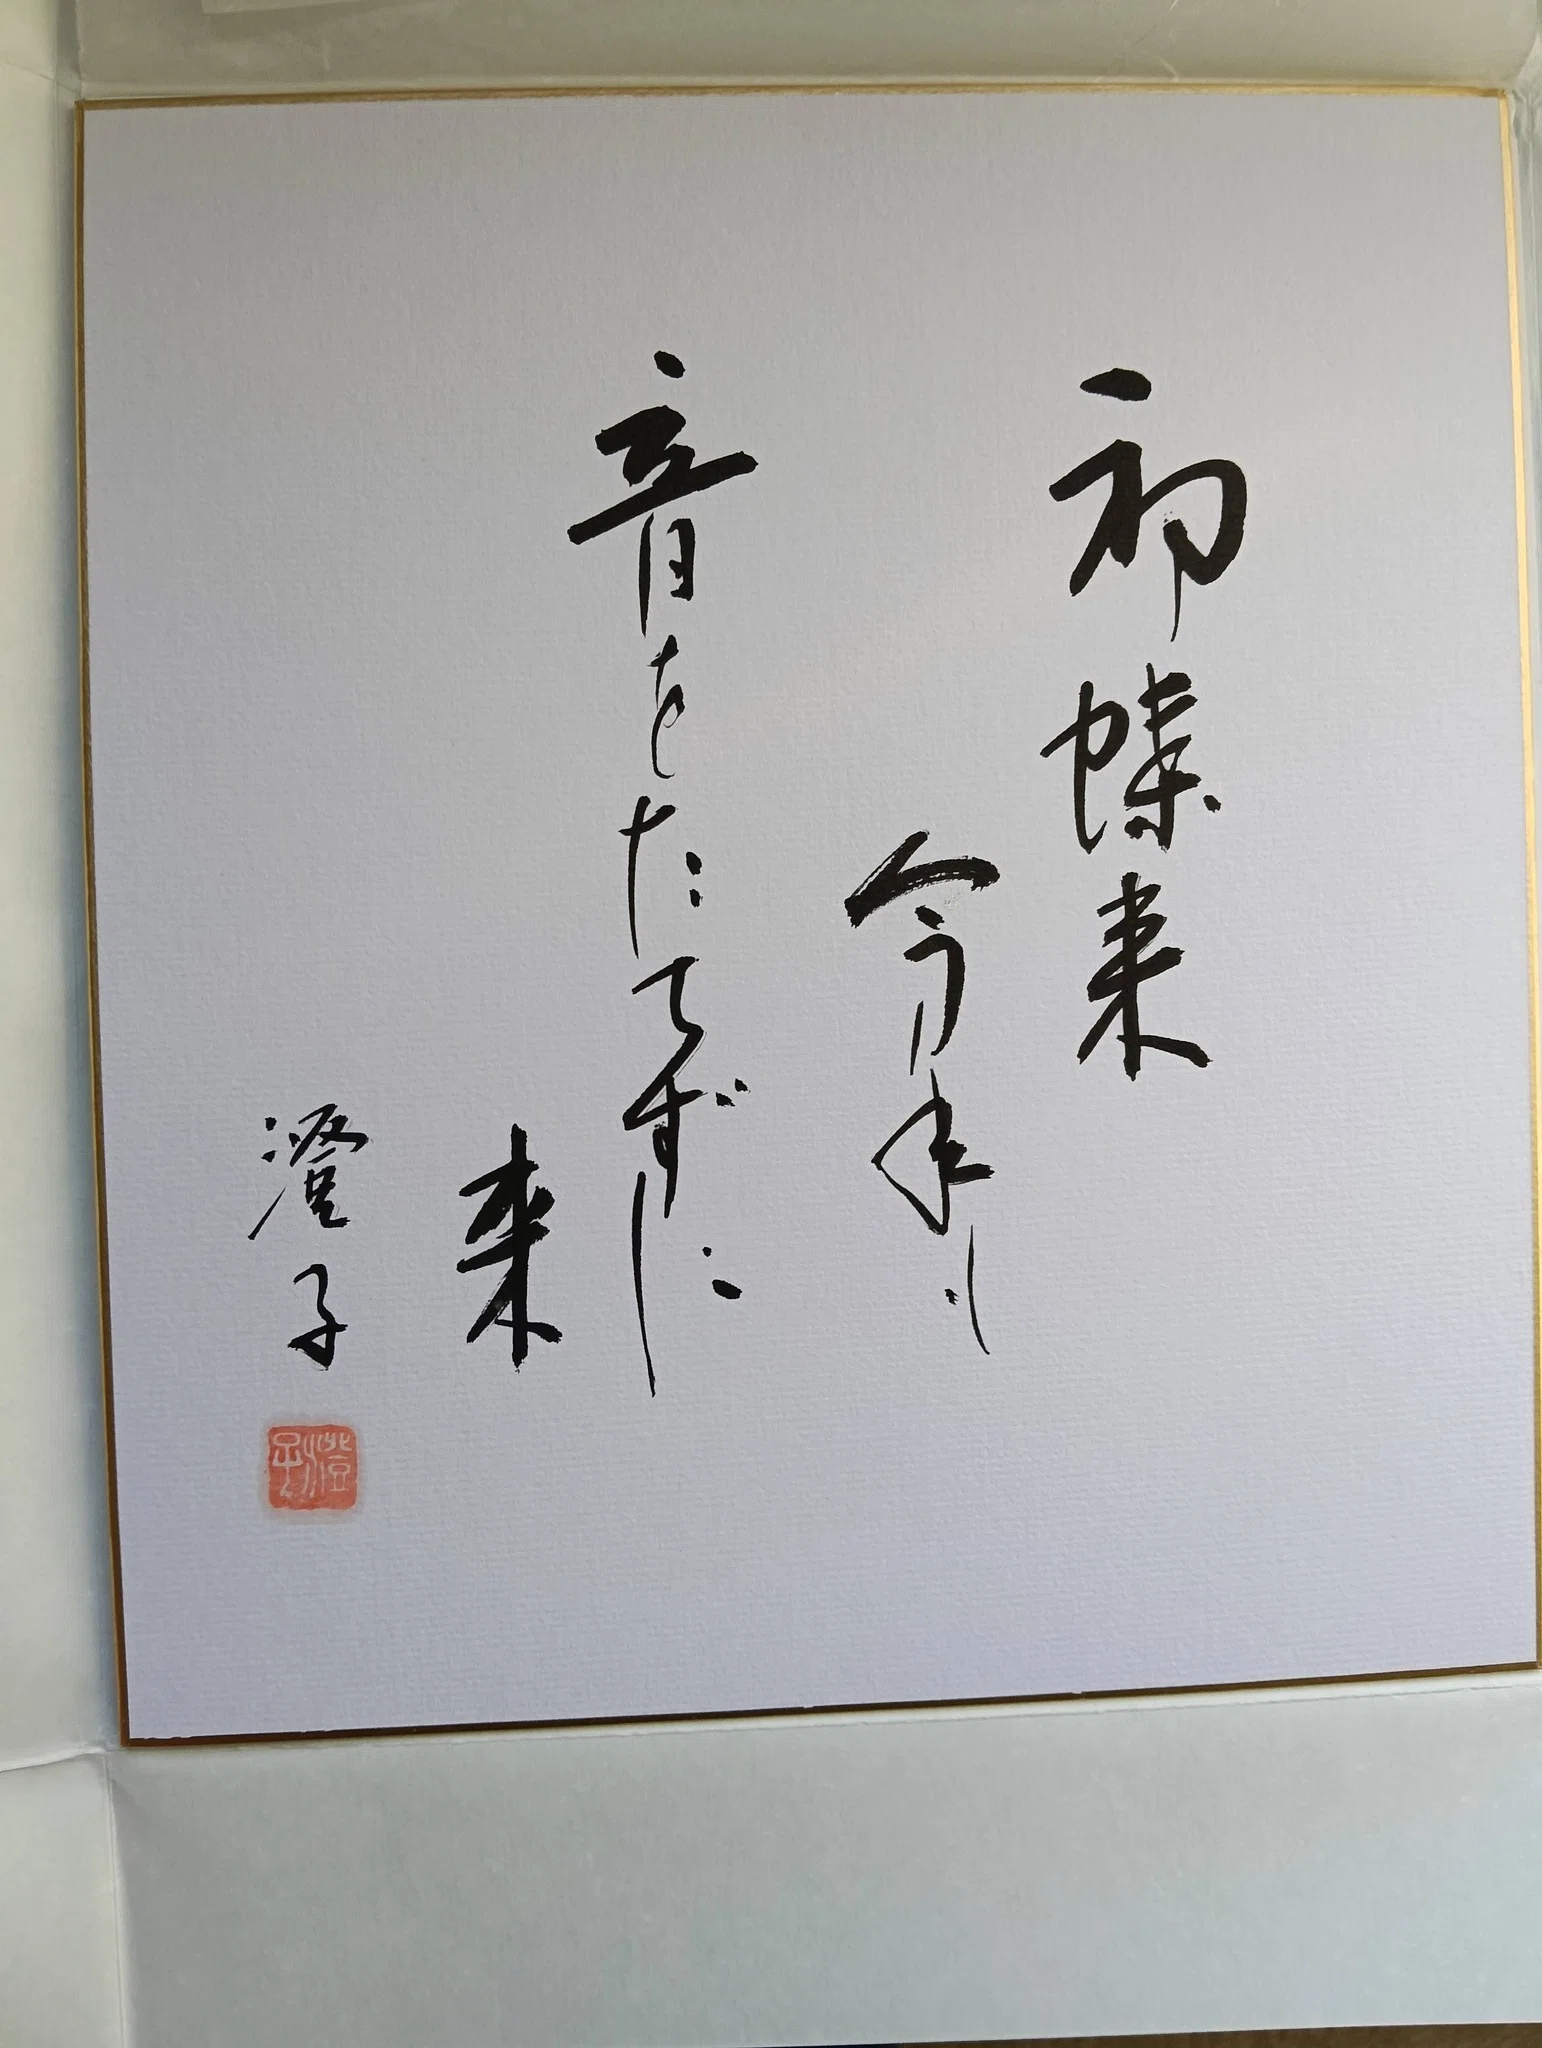 初蝶来
今年も
音をたてずに
来
澄子
澄子